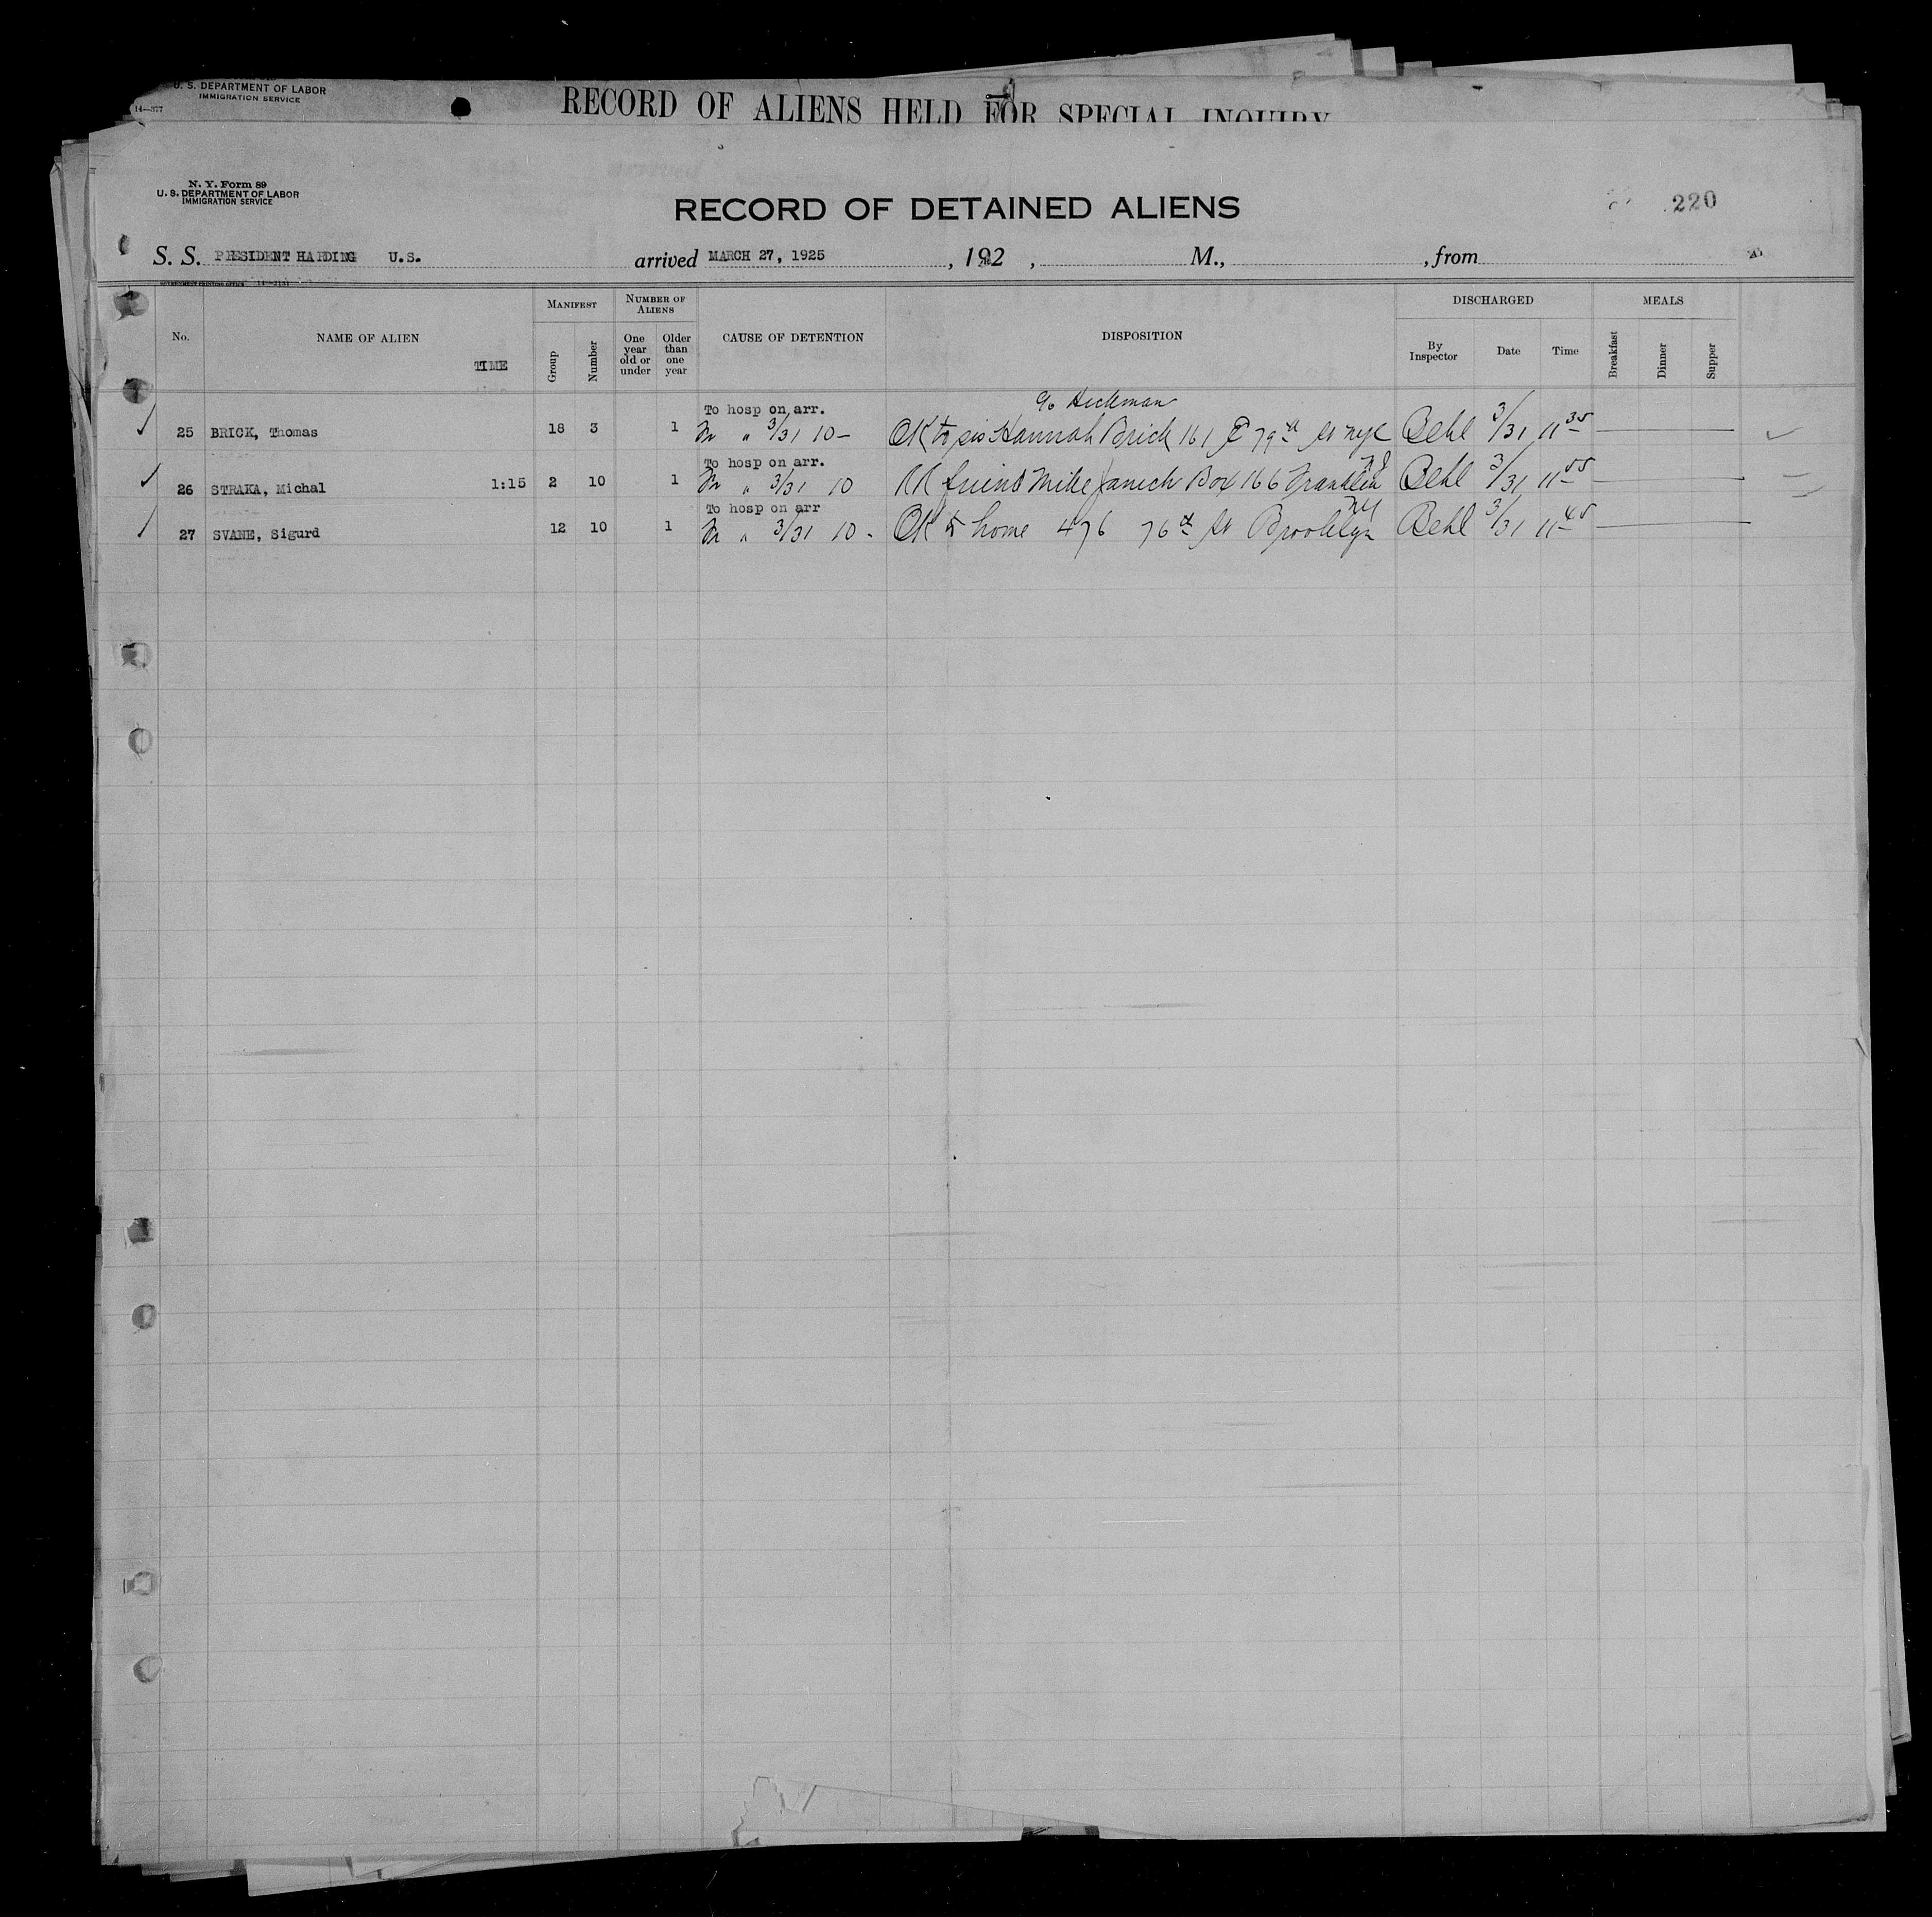 U. S. DEPARTMENT OF LABOR
IMMIGRATION SERVICE
14—377
RECORD OF ALIENS HELD FOR SPECIAL INQUIRY
N. Y. Form 89
U. S. DEPARTMENT OF LABOR
IMMIGRATION SERVICE
RECORD OF DETAINED ALIENS
220
S. S. PRESIDENT HARDING U.S. arrived MARCH 27, 1925 , 192 , M., , from
GOVERNMENT PRINTING OFFICE
No. NAME OF ALIEN TIME MANIFEST Group Number NUMBER OF ALIENS One year old or under Older than one year CAUSE OF DETENTION DISPOSITION DISCHARGED By Inspector Date Time MEALS Breakfast Dinner Supper
To hosp on arr. c/o Heckman
25 BRICK, Thomas 18 3 1 " 3/31 10— OK to sis Hannah Brick 161 E 79th St NYC Behl 3/31 11 35
To hosp on arr.
26 STRAKA, Michal 1:15 2 10 1 " 3/31 10 friend Mike Box 166 Franklin NJ Behl 3/31 11 55
To hosp on arr
27 SVANE, Sigurd 12 10 1 " 3/31 10 - OK to home 476 76th St Brooklyn NY Behl 3/31 11 45